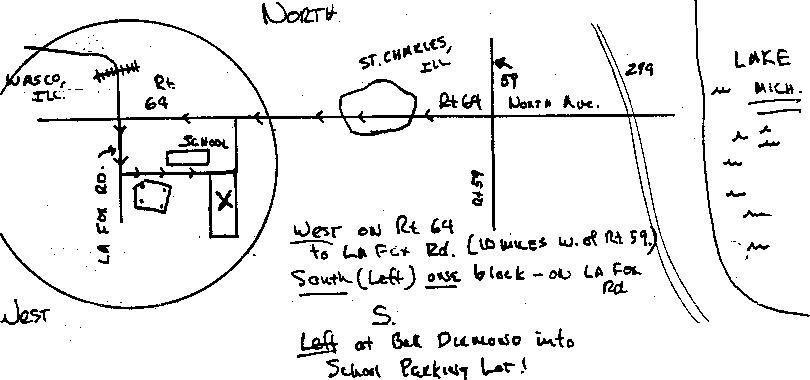 NORTH
WASCO,
ILL.
Rt
64
ST. CHARLES,
ILL
Rt 64
59
NORTH AVE.
294
LAKE
MICH.
SCHOOL
LA FOX RD.
X
Rt 59
WEST ON Rt 64
to LA FOX Rd. (10 MILES W. of Rt 59)
South (Left) one block - ON LA FOX
Rd
WEST
S.
Left at Ball DIAMOND into
School Parking Lot!